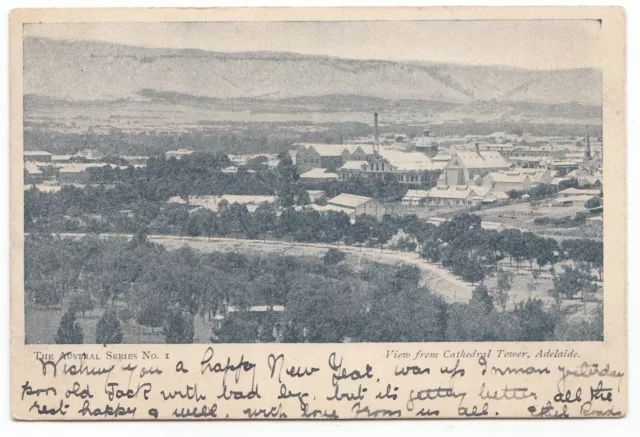 THE AUSTRAL SERIES NO. 1
View from Cathedral Tower, Adelaide.
Wishing you a happy New Year, was up yesterday
poor old Jack with bad leg, but its getting better, all the
rest happy & well, with love from us all.